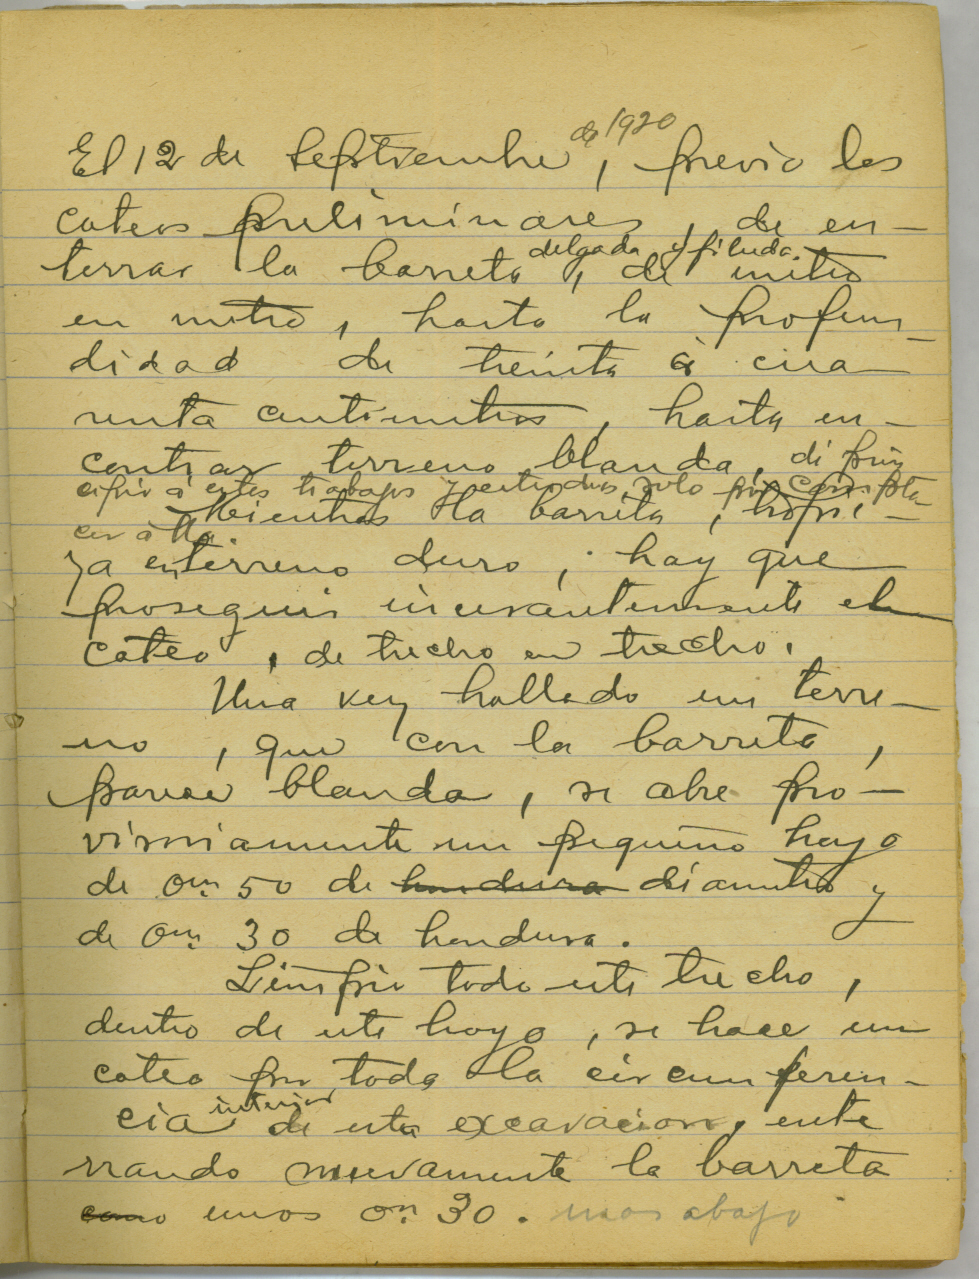 de 1920
El 12 de Septiembre, previo los
cateos preliminares, de en-
delgada y filuda.
terrar la barreta, de metro
en metro, hasta la profun-
didad de treinta á cua-
renta centimetros, hasta en-
contrar terreno blando, di prin
cipio á estos trabajos y
Mientras la barreta, tropie-
za en terreno duro, hay que
proseguir incesantemente el
cateo, de trecho en trecho.
Una vez hallado un terre-
no, que con la barreta,
parece blando, se abre pro-
visoriamente un pequeño hoyo
de 0m 50 de hondura diametro y
de 0m 30 de hondura.
Limpio todo este trecho,
dentro de este hoyo, se hace un
cateo por toda la circunferen-
interior
cia de esta excavacion, ente
rrando nuevamente la barreta
como unos 0m 30. mas abajo